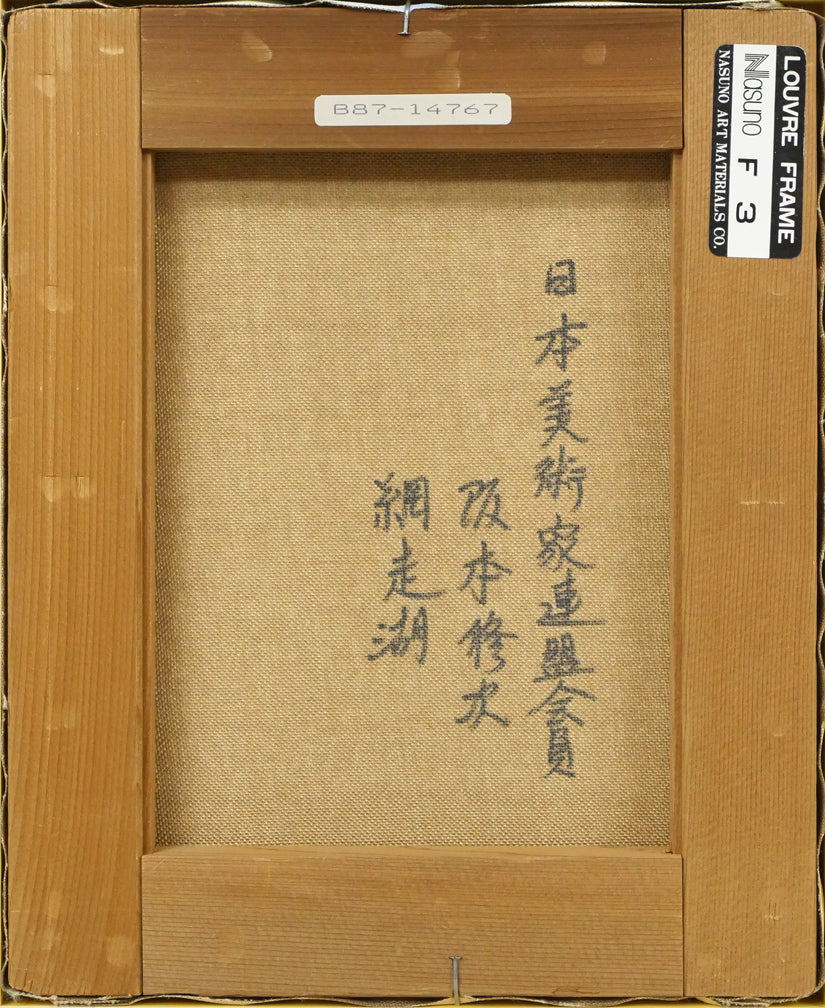 B87-14767
LOUVRE FRAME
Nasuno F 3
NASUNO ART MATERIALS CO.
日本美術家連盟会員
阪本修次
網走湖